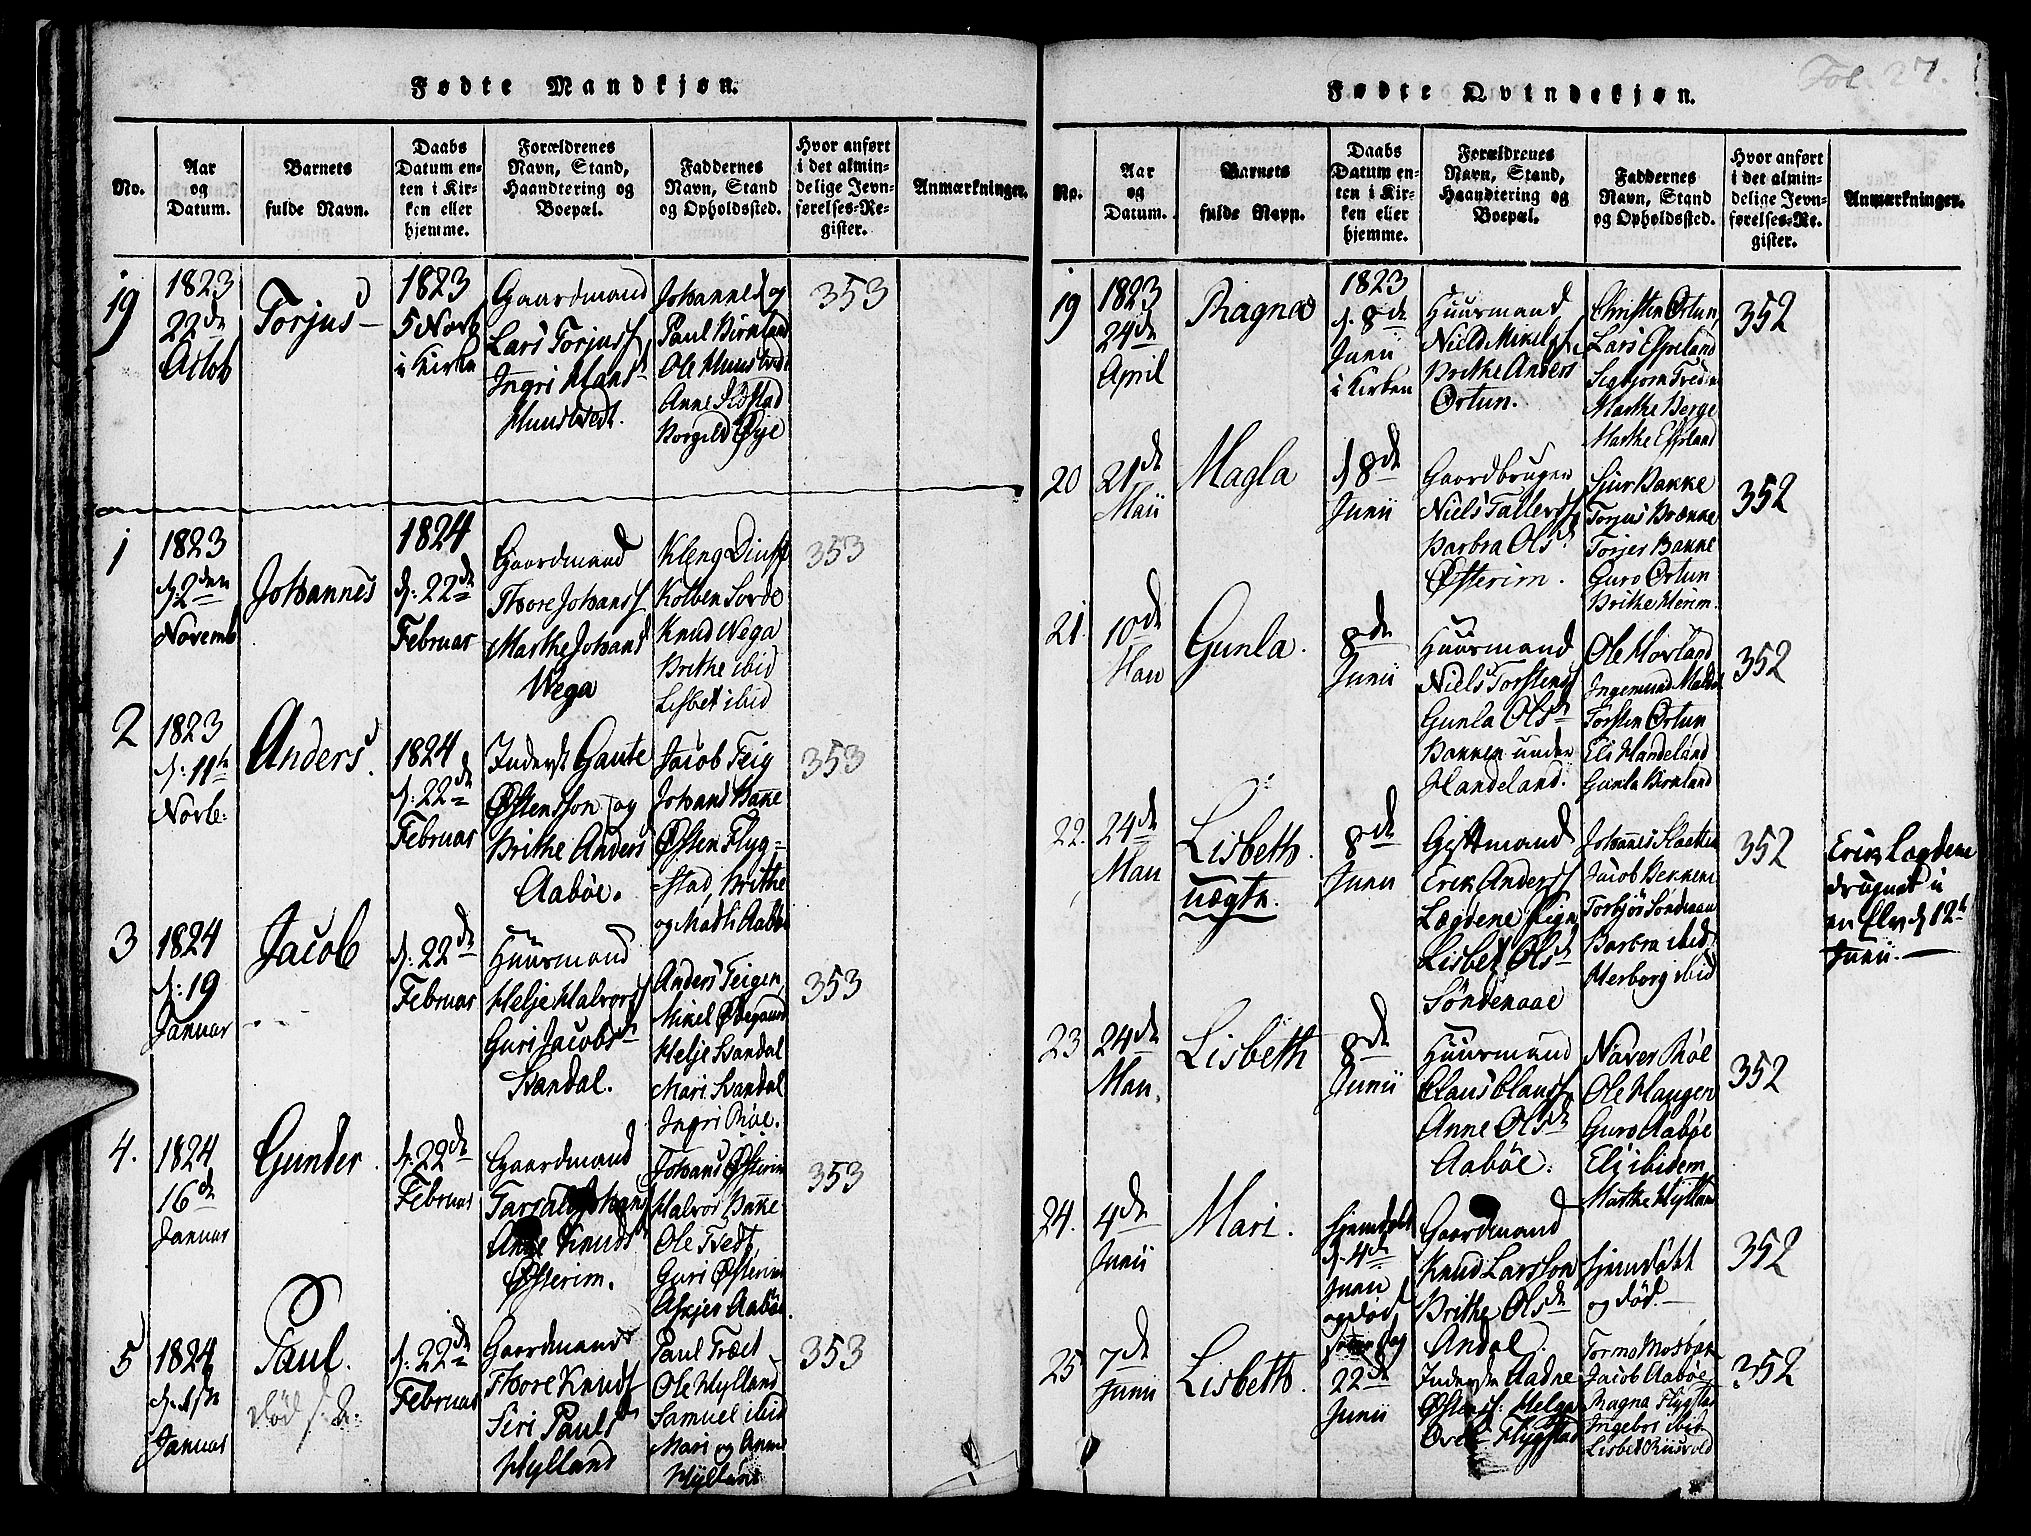 Fødte Mandkjøn.
No.
Aar
og
Datum.
Barnets
fulde Navn.
Daabs
Datum en-
ten i Kir-
ken eller
hjemme.
Forældrenes
Navn, Stand,
Haandtering og
Boepæl.
Faddernes
Navn, Stand
og Opholdssted.
Hvor anført
i det almin-
delige Jevn-
førelses-Re-
gister.
Anmærkninger.
19
1823
22de
Octob
Torjus
1823
5 Novb
i Kirke
Gaardmand
Lars Torjuss
Ingri Hans
Johannes og
Paul Birkland
Ole
Anne
Borgild Øye
353
1
1823
d: 2den
Novemb
Johannes
1824
d: 22de
Februar
Gaardmand
Thore Johanss
Marthe Johans
Wega
Kleng
Kolben Sorde
Knud Wega
Brithe ibid
Lisbet ibid
353
2
1823
d: 11te
Novb:
Anders.
1824
d: 22de
Februar
Inderst Gaute
Østensson og
Brithe Anders
Aabøe.
Jacob Teig
Johans Bakke
Østen Flyg=
=stad, Brithe
og Aabøe
353
3
1824
d: 19
Januar
Jacob
d: 22de
Februar
Huusmand
Helje Halvors
Guri Jacobsd
Svandal.
Anders Teigen,
Mikel Ødegaard
Helje Svandal
Mari Svandal
Ingri Røe.
353
4.
1824
16de
Januar
Gunder.
d: 22de
Februar
Gaardmand
Knuds
Østerim.
Johans Østerim
Halvor Bakke
Ole Tvedt,
Guri Østerim
Aabøe.
353
5
1824
Januar
Paul.
død
d: 22de
Februar
Gaardmand
Thore Knuds
Siri Pauls
Hylland
Paul Træet
Ole Hylland
Samuel ibid
Mari og Anne
Hylland
353
Fol. 27.
Fødte Qvindekjøn.
No.
Aar
og
Datum.
Barnets
fulde Navn.
Daabs
Datum en-
ten i Kir-
ken eller
hjemme.
Forældrenes
Navn, Stand,
Haandtering og
Boepæl.
Faddernes
Navn, Stand
og Opholdssted.
Hvor anført
i det almin-
delige Jevn-
førelses-Re-
gister.
Anmærkninger.
19
1823
24de
April
Ragna
1823
d. 8de
Junii
i Kirken
Huusmand
Niels Mikels
Brithe Anders
Ortun.
Christen Ortun,
Lars Espeland
Sigbjorn
Marthe Berge
Marthe Espland
352
20
21de
Maii
Magla
d 8de
Junii
Gaardbruger
Niels Tallers
Barbra Olsd
Østerim.
Siur Bakke
Torjus
Torjer Bakke
Guro Ortun
Brithe
352
21.
10de
Maii
Gunla.
8de
Junii
Huusmand
Niels Torstens
Gunla Olsd
Bakken under
Handeland.
Ole Hovland
Ingemund
Torsten Ortun
Eli Handeland
Gunla
352
22.
24de
Maii
Lisbeth.
uægte.
8de
Junii
Giftmand
Erik Anderss
Lægdene
Lisbet Olsd
Søndenaae
Johannes
Jacob
Torbjør Søndenaae
Barbra ibid
Herborg ibid
352
Erik Lægdene
d 12te
Junii.
23
24de
Maii.
Lisbeth
8de
Junii
Huusmand
Claus Clauss
Anne Olsd
Aabøe.
Naver Røe
Ole Haugen
Guro Aabøe
Eli ibidem
Marthe Hylland
352
24.
4de
Junii
Mari.
hjemdøbt
d. 4de
Junii
og død
Gaardmand
Knud Larsson
Brithe Olsd
Andal.
hjemdøbt
og død.
352
25
7de
Junii
Lisbeth.
22de
Junii
Inderste Aadne
Østens: Helga
Flygstad
Jacob Aabøe,
Ragna Flygstad
Ingebor ibid
Lisbet
352